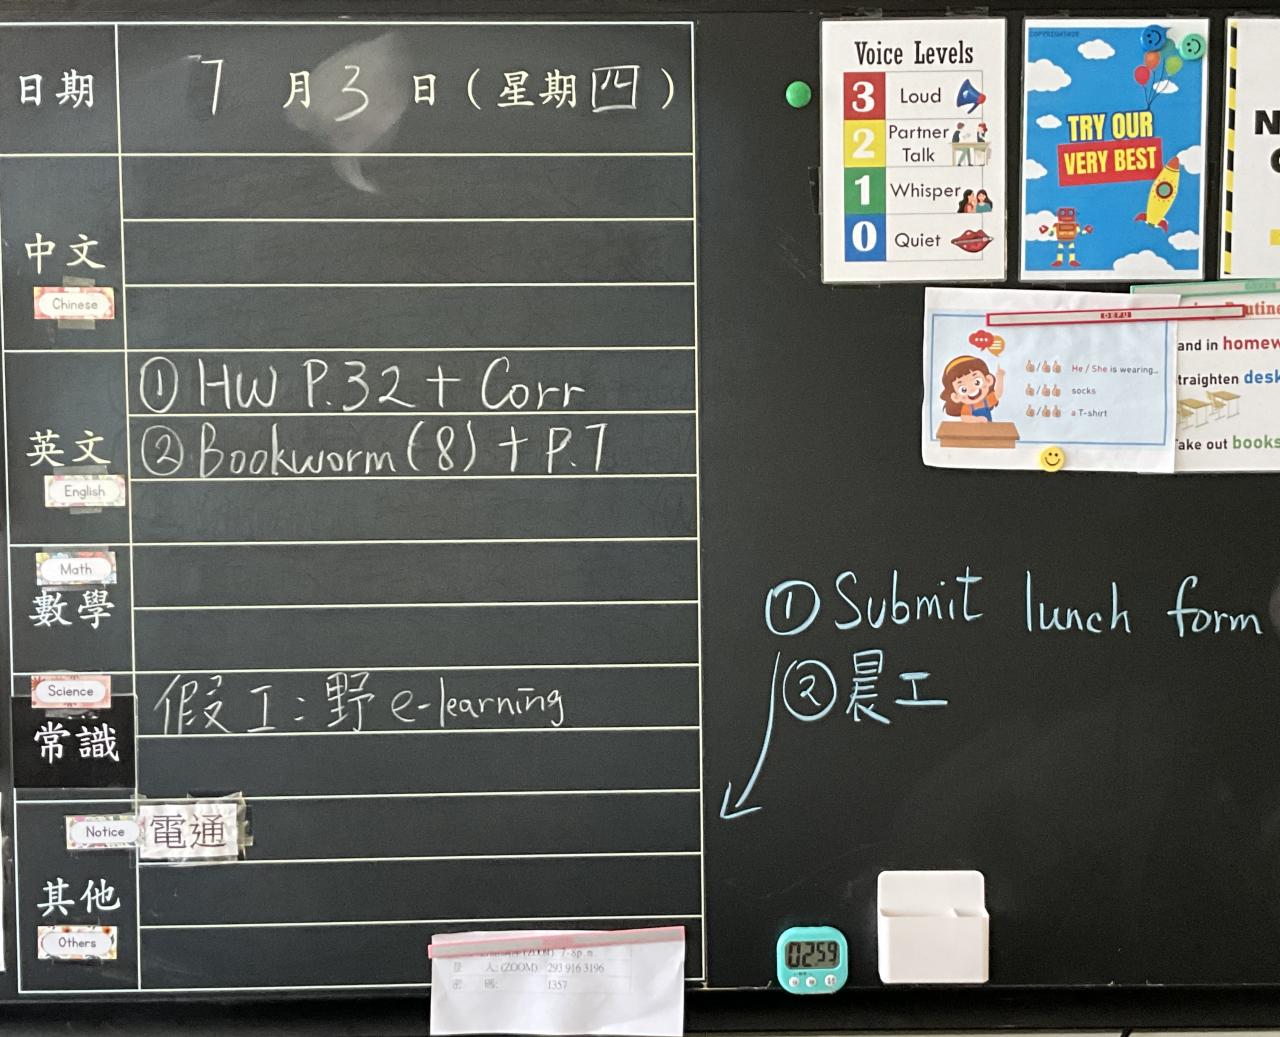 日期 7 月 3 日 (星期 四 )
中文
Chinese
英文
English
① HW P.32 + Corr
② Bookworm (8) + P.7
Math
數學
Science
常識
假工: 野 e-learning
Notice
電通
其他
Others
(ZOOM) 7-8p.m
登 人: (ZOOM) 293 916 3196
密 碼: 1357
Voice Levels
3 Loud
2 Partner Talk
1 Whisper
0 Quiet
TRY OUR
VERY BEST
DEFU
He / She is wearing...
socks
a T-shirt
and in homew
traighten desk
ake out books
① Submit lunch form
② 晨工
0259